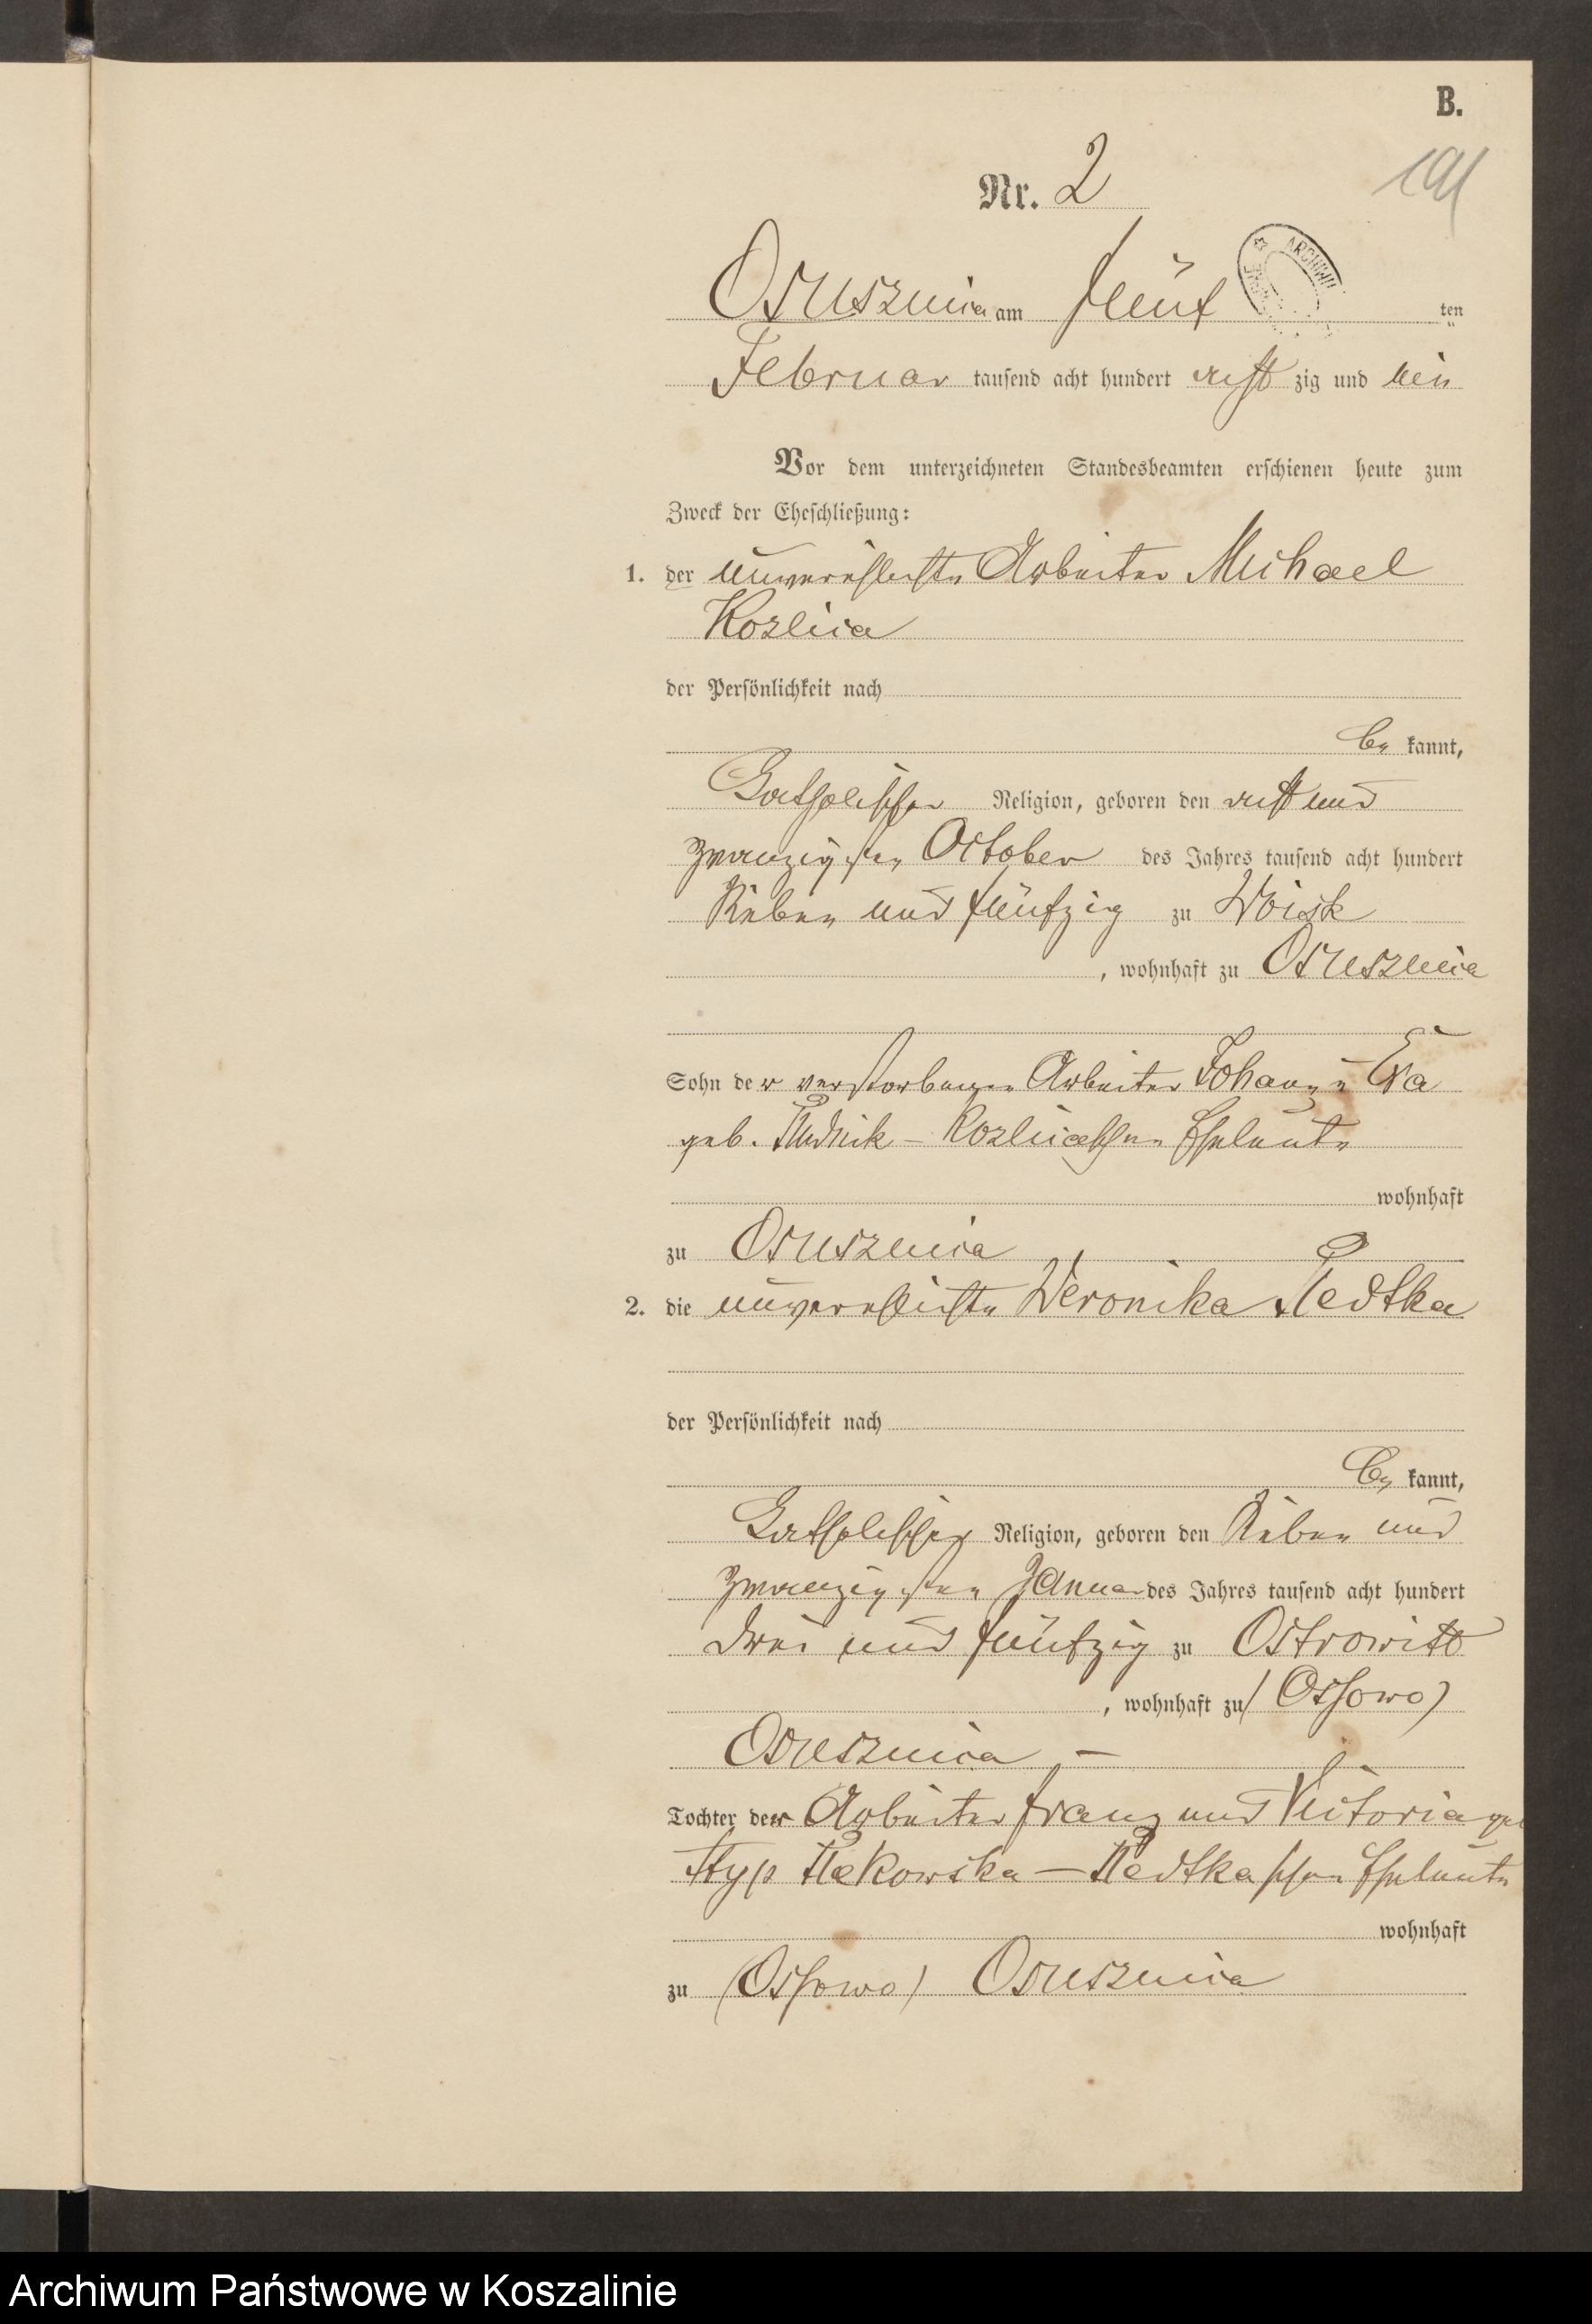 B.
191
Nr. 2
ARCHIWU
Osusznica am fünf ten
Februar tausend acht hundert acht zig und ein
Vor dem unterzeichneten Standesbeamten erschienen heute zum
Zweck der Eheschließung:
1. der unverehlichte Arbeiter Michael
Kozlica
der Persönlichkeit nach
be kannt,
Katholischer Religion, geboren den acht und
zwanzigsten October des Jahres tausend acht hundert
sieben und fünfzig zu Woisk
, wohnhaft zu Osusznica
Sohn der verstorbenen Arbeiter Johann u Eva
geb. Rudnik - Kozlicaschen Eheleute
wohnhaft
zu Osusznica
2. die unverehlichte Weronika Redtka
der Persönlichkeit nach
be kannt,
Katholischer Religion, geboren den sieben und
zwanzigsten Januar des Jahres tausend acht hundert
drei und fünfzig zu Ostrowitt
, wohnhaft zu ( Ossowo )
Osusznica —
Tochter der Arbeiter Franz und Victoria geb
Styp Rekowska — Redtkaschen Eheleute
wohnhaft
zu (Ossowo) Osusznica
Archiwum Państwowe w Koszalinie